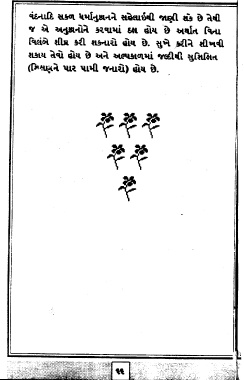 વંદનાદિ સકળ ધર્માનુષ્ઠાનને સહેલાઇથી જાણી શકે છે તેથી
જ એ અનુષ્ઠાનોને કરવામાં દક્ષ હોય છે અર્થાત વિના
વિલંબે શીઘ્ર કરી શકનારો હોય છે. સુખે કરીને શીખવી
શકાય તેવો હોય છે અને અલ્પકાળમાં જલ્દીથી સુશિક્ષિત
(શિક્ષણને પાર પામી જનારો) હોય છે.
૧૬